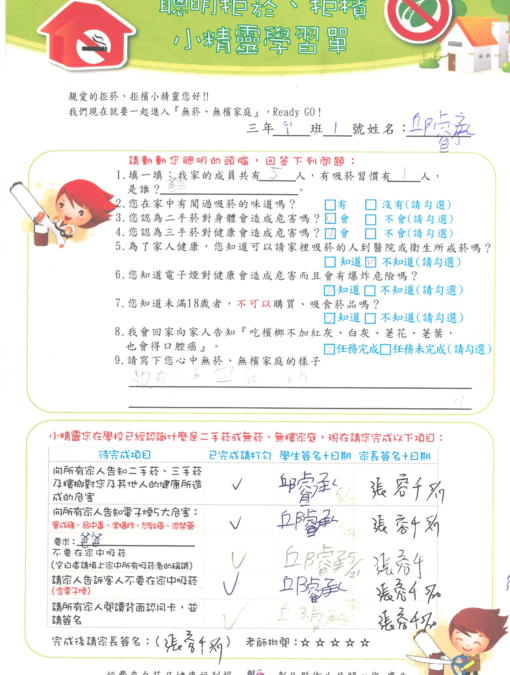 聰明拒菸、拒檳
小精靈學習單
親愛的拒菸、拒檳小精靈您好!!
我們現在就要一起進入『無菸、無檳家庭』,Ready GO!
三年 班 1 號姓名：邱睿承
請動動您聰明的頭腦，回答下列問題：
1.填一填：我家的成員共有 5 人，有吸菸習慣有 1 人，
是誰？爸爸。
2.您在家中有聞過吸菸的味道嗎？ □有 □沒有(請勾選)
3.您認為二手菸對身體會造成危害嗎？☑會 □不會(請勾選)
4.您認為三手菸對健康會造成危害嗎？☑會 □不會(請勾選)
5.為了家人健康，您知道可以請家裡吸菸的人到醫院或衛生所戒菸嗎？
□知道☑不知道(請勾選)
6.您知道電子煙對健康會造成危害而且會有爆炸危險嗎？
☑知道□不知道(請勾選)
7.您知道未滿18歲者，不可以購買、吸食菸品嗎？
☑知道□不知道(請勾選)
8.我會回家向家人告知『吃檳榔不加紅灰、白灰、荖花、荖葉，
也會得口腔癌』。 ☑任務完成□任務未完成(請勾選)
9.請寫下您心中無菸、無檳家庭的樣子
小精靈您在學校已經認識什麼是二手菸或無菸、無檳家庭，現在請您完成以下項目：
待完成項目 已完成請打勾 學生簽名+日期 家長簽名+日期
向所有家人告知二手菸、三手菸
及檳榔對您及其他人的健康所造
成的危害 ✓ 邱睿承
向所有家人告知電子煙5大危害：
會成癮、易中毒、會爆炸、恐致癌、添禁藥 ✓ 邱睿承
要求：爸爸
不要在家中吸菸
(空白處請填上家中所有吸菸者的稱謂) ✓ 邱睿承
請家人告訴客人不要在家中吸菸
(含電子煙) ✓ 邱睿承
請所有家人閱讀背面認同卡，並
請簽名 ✓ 邱睿承
完成後請家長簽名：( ) 老師批閱：☆☆☆☆☆